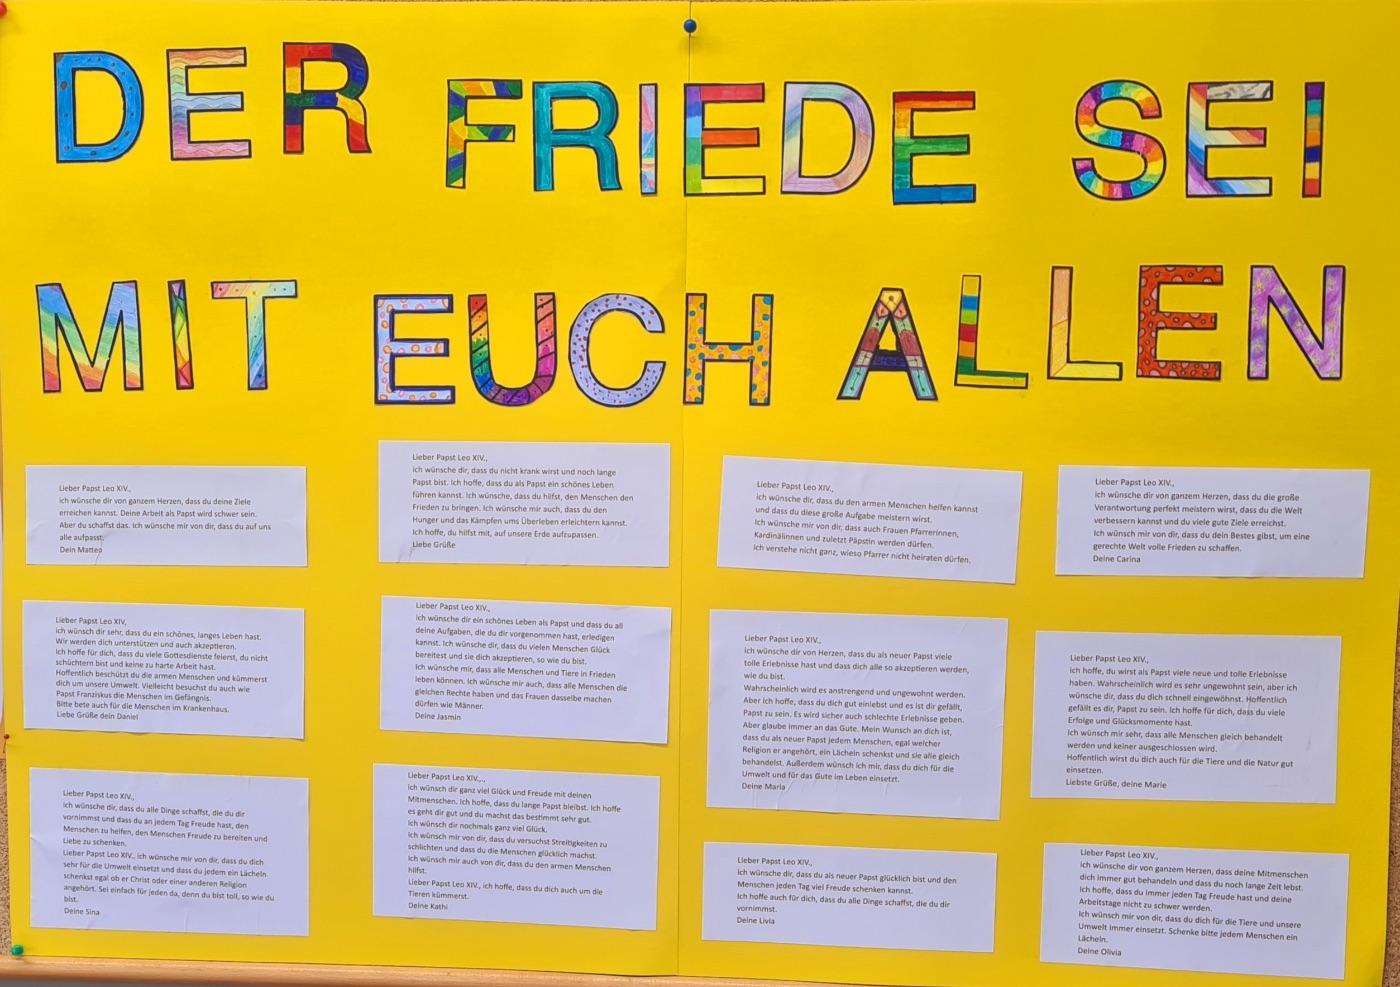 DER FRIEDE SEI
MIT EUCH ALLEN
Lieber Papst Leo XIV.,
ich wünsche dir von ganzem Herzen, dass du deine Ziele
erreichen kannst. Deine Arbeit als Papst wird schwer sein.
Aber du schaffst das. Ich wünsche mir von dir, dass du auf uns
alle aufpasst.
Dein Matteo
Lieber Papst Leo XIV.,
ich wünsche dir, dass du nicht krank wirst und noch lange
Papst bist. Ich hoffe, dass du als Papst ein schönes Leben
führen kannst. Ich wünsche, dass du hilfst, den Menschen den
Frieden zu bringen. Ich wünsche mir auch, dass du den
Hunger und das Kämpfen ums Überleben erleichtern kannst.
Ich hoffe, du hilfst mit, auf unsere Erde aufzupassen.
Liebe Grüße
Lieber Papst Leo XIV.,
ich wünsche dir, dass du den armen Menschen helfen kannst
und dass du diese große Aufgabe meistern wirst.
Ich wünsche mir von dir, dass auch Frauen Pfarrerinnen,
Kardinälinnen und zuletzt Päpstin werden dürfen.
Ich verstehe nicht ganz, wieso Pfarrer nicht heiraten dürfen.
Lieber Papst Leo XIV.,
ich wünsche dir von ganzem Herzen, dass du die große
Verantwortung perfekt meistern wirst, dass du die Welt
verbessern kannst und du viele gute Ziele erreichst.
Ich wünsch mir von dir, dass du dein Bestes gibst, um eine
gerechte Welt volle Frieden zu schaffen.
Deine Carina
Lieber Papst Leo XIV,
ich wünsch dir sehr, dass du ein schönes, langes Leben hast.
Wir werden dich unterstützen und auch akzeptieren.
Ich hoffe für dich, dass du viele Gottesdienste feierst, du nicht
schüchtern bist und keine zu harte Arbeit hast.
Hoffentlich beschützt du die armen Menschen und kümmerst
dich um unsere Umwelt. Vielleicht besuchst du auch wie
Papst Franziskus die Menschen im Gefängnis.
Bitte bete auch für die Menschen im Krankenhaus.
Liebe Grüße dein Daniel
Lieber Papst Leo XIV.,
ich wünsche dir ein schönes Leben als Papst und dass du all
deine Aufgaben, die du dir vorgenommen hast, erledigen
kannst. Ich wünsche dir, dass du vielen Menschen Glück
bereitest und sie dich akzeptieren, so wie du bist.
Ich wünsche mir, dass alle Menschen und Tiere in Frieden
leben können. Ich wünsche mir auch, dass alle Menschen die
gleichen Rechte haben und das Frauen dasselbe machen
dürfen wie Männer.
Deine Jasmin
Lieber Papst Leo XIV.,
ich wünsche dir von Herzen, dass du als neuer Papst viele
tolle Erlebnisse hast und dass dich alle so akzeptieren werden,
wie du bist.
Wahrscheinlich wird es anstrengend und ungewohnt werden.
Aber ich hoffe, dass du dich gut einlebst und es ist dir gefällt,
Papst zu sein. Es wird sicher auch schlechte Erlebnisse geben.
Aber glaube immer an das Gute. Mein Wunsch an dich ist,
dass du als neuer Papst jedem Menschen, egal welcher
Religion er angehört, ein Lächeln schenkst und sie alle gleich
behandelst. Außerdem wünsch ich mir, dass du dich für die
Umwelt und für das Gute im Leben einsetzt.
Deine Maria
Lieber Papst Leo XIV.,
ich hoffe, du wirst als Papst viele neue und tolle Erlebnisse
haben. Wahrscheinlich wird es sehr ungewohnt sein, aber ich
wünsche dir, dass du dich schnell eingewöhnst. Hoffentlich
gefällt es dir, Papst zu sein. Ich hoffe für dich, dass du viele
Erfolge und Glücksmomente hast.
Ich wünsch mir sehr, dass alle Menschen gleich behandelt
werden und keiner ausgeschlossen wird.
Hoffentlich wirst du dich auch für die Tiere und die Natur gut
einsetzen.
Liebste Grüße, deine Marie
Lieber Papst Leo XIV.,
ich wünsche dir, dass du alle Dinge schaffst, die du dir
vornimmst und dass du an jedem Tag Freude hast, den
Menschen zu helfen, den Menschen Freude zu bereiten und
Liebe zu schenken.
Lieber Papst Leo XIV., ich wünsche mir von dir, dass du dich
sehr für die Umwelt einsetzt und dass du jedem ein Lächeln
schenkst egal ob er Christ oder einer anderen Religion
angehört. Sei einfach für jeden da, denn du bist toll, so wie du
bist.
Deine Sina
Lieber Papst Leo XIV.,.,
ich wünsch dir ganz viel Glück und Freude mit deinen
Mitmenschen. Ich hoffe, dass du lange Papst bleibst. Ich hoffe
es geht dir gut und du machst das bestimmt sehr gut.
Ich wünsch dir nochmals ganz viel Glück.
Ich wünsch mir von dir, dass du versuchst Streitigkeiten zu
schlichten und dass du die Menschen glücklich machst.
Ich wünsch mir auch von dir, dass du den armen Menschen
hilfst.
Lieber Papst Leo XIV., ich hoffe, dass du dich auch um die
Tieren kümmerst.
Deine Kathi
Lieber Papst Leo XIV.,
ich wünsche dir, dass du als neuer Papst glücklich bist und den
Menschen jeden Tag viel Freude schenken kannst.
Ich hoffe auch für dich, dass du alle Dinge schaffst, die du dir
vornimmst.
Deine Livia
Lieber Papst Leo XIV.,
ich wünsche dir von ganzem Herzen, dass deine Mitmenschen
dich immer gut behandeln und dass du noch lange Zeit lebst.
Ich hoffe, dass du immer jeden Tag Freude hast und deine
Arbeitstage nicht zu schwer werden.
Ich wünsch mir von dir, dass du dich für die Tiere und unsere
Umwelt immer einsetzt. Schenke bitte jedem Menschen ein
Lächeln.
Deine Olivia